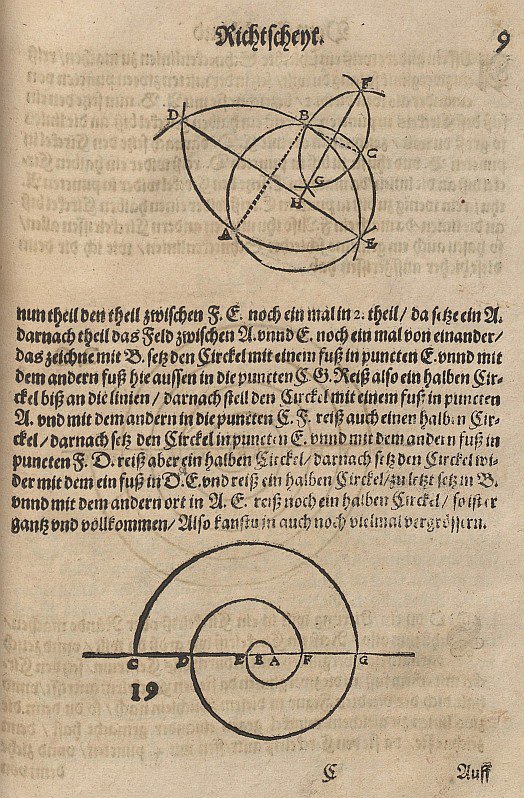 Richtscheyt. 9
F
D B
C
G
H
A E
nun theil den theil zwischen F. E. noch ein mal in 2. theil/ da setze ein A.
darnach theil das Feld zwischen A. vnnd E. noch ein mal von einander/
das zeichne mit B. setz den Circkel mit einem fuß in puncten E. vnnd mit
dem andern fuß hie aussen in die puncten C. G. Reiß also ein halben Cir-
ckel biß an die linien/ darnach stell den Circkel mit einem fuß in puncten
A. vnd mit dem andern in die puncten C. F. reiß auch einen halben Cir-
ckel/ darnach setz den Circkel in puncten E. vnnd mit dem andern fuß in
puncten F. D. reiß aber ein halben Circkel/ darnach setz den Circkel wi-
der mit dem ein fuß in D. E. vnd reiß ein halben Circkel/ zu letzt setz in B.
vnnd mit dem andern ort in A. E. reiß noch ein halben Circkel/ so ist er
gantz vnd vollkommen/ Also kanstu in auch noch vielmal vergrössern.
C D E B A F G
19
C Auff